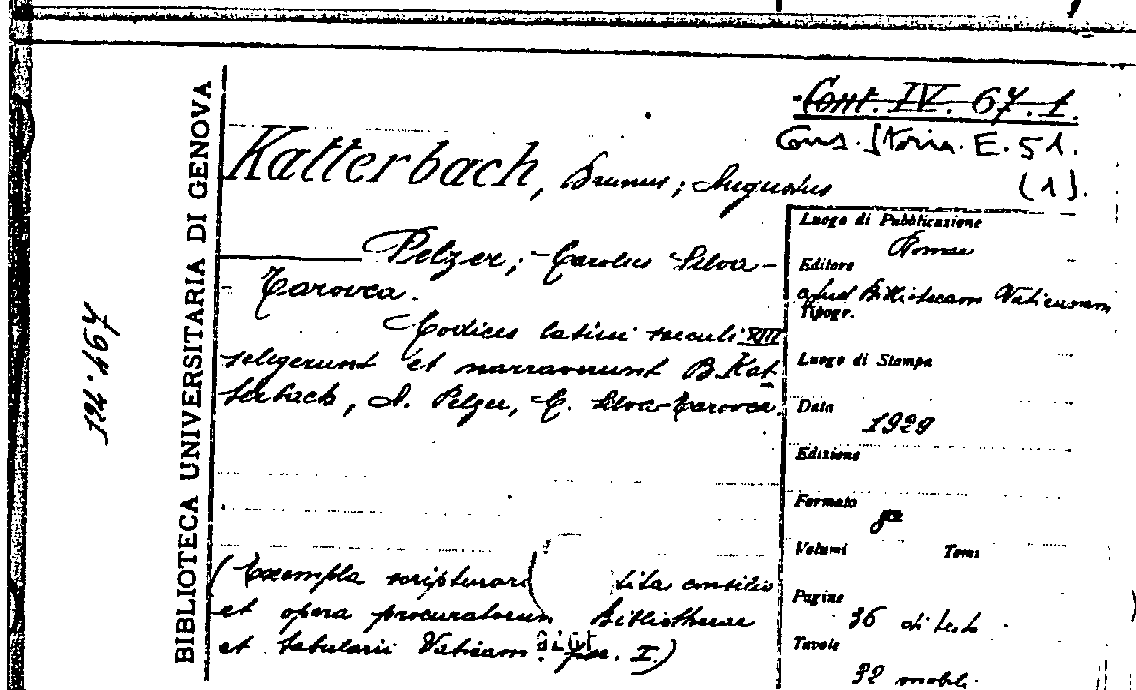 Cont. IV. 67.1.
Cons. Storia. E. 51.
(1).
Katterbach, Brunus; Augustus
Pelzer; Carolus Silva-
Tarovca.
Codices latini saeculi XIII
seligerunt et narraverunt B. Kat
terbach, A. Pelzer, C. Silva-Tarovca.
(Exempla scripturar tita consilio
et opera procuratorum Bibliothecae
et tabularii Vaticani I.)
BIBLIOTECA UNIVERSITARIA DI GENOVA
124.167
Luogo di Pubblicazione
Romae
Editore
apud Bibliotecam Vaticanam
Tipogr.
Luogo di Stampa
Data
1929
Edizione
Formato
Volumi Tomi
Pagine
36 di testo
Tavole
32 mobili